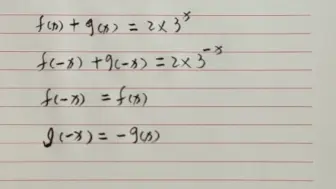 f(x) + g(x) = 2 × 3^x
f(-x) + g(-x) = 2 × 3^-x
f(-x) = f(x)
g(-x) = -g(x)